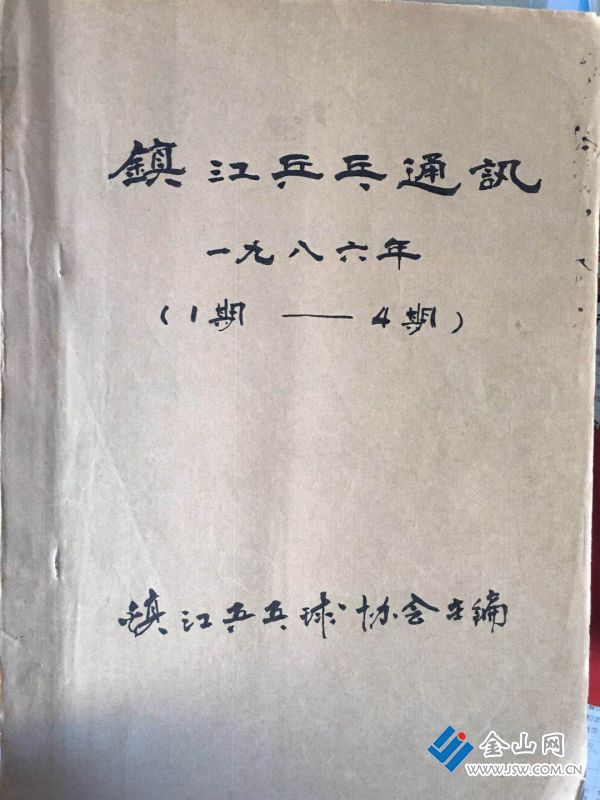 鎮江乒乓通訊
一九八六年
(1期 — 4期)
镇江乒乓球协会主编
金山网
WWW.JSW.COM.CN